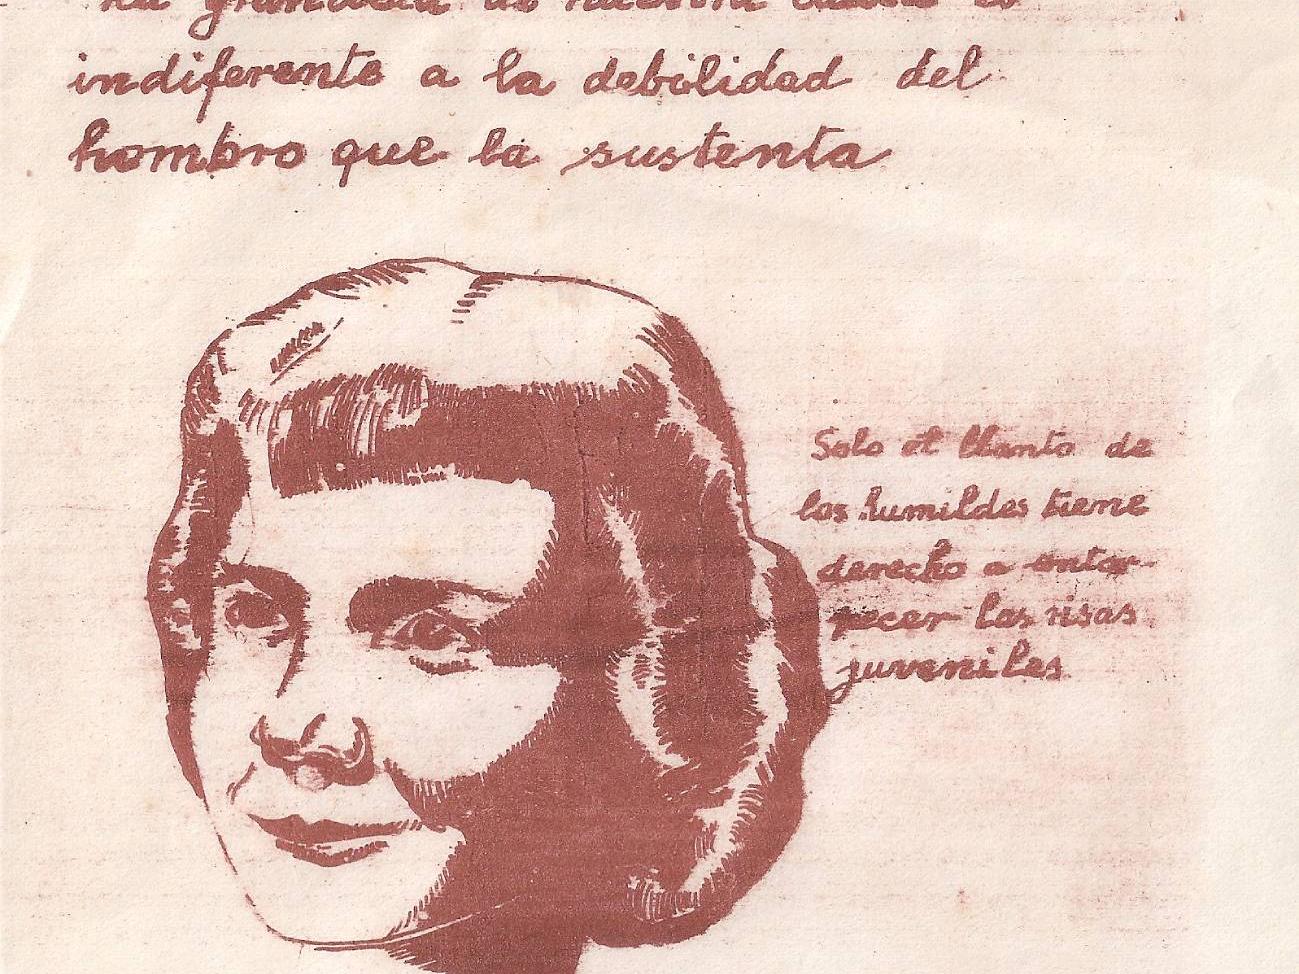 La grandeza de nuestra causa es
indiferente a la debilidad del
hombro que la sustenta
Solo el llanto de
los humildes tiene
derecho a entor-
pecer las risas
juveniles